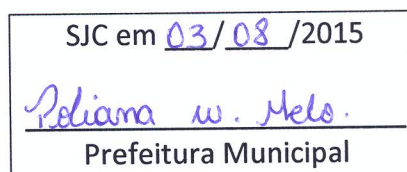 SJC em 03/08/2015
Poliana w. Melo.
Prefeitura Municipal